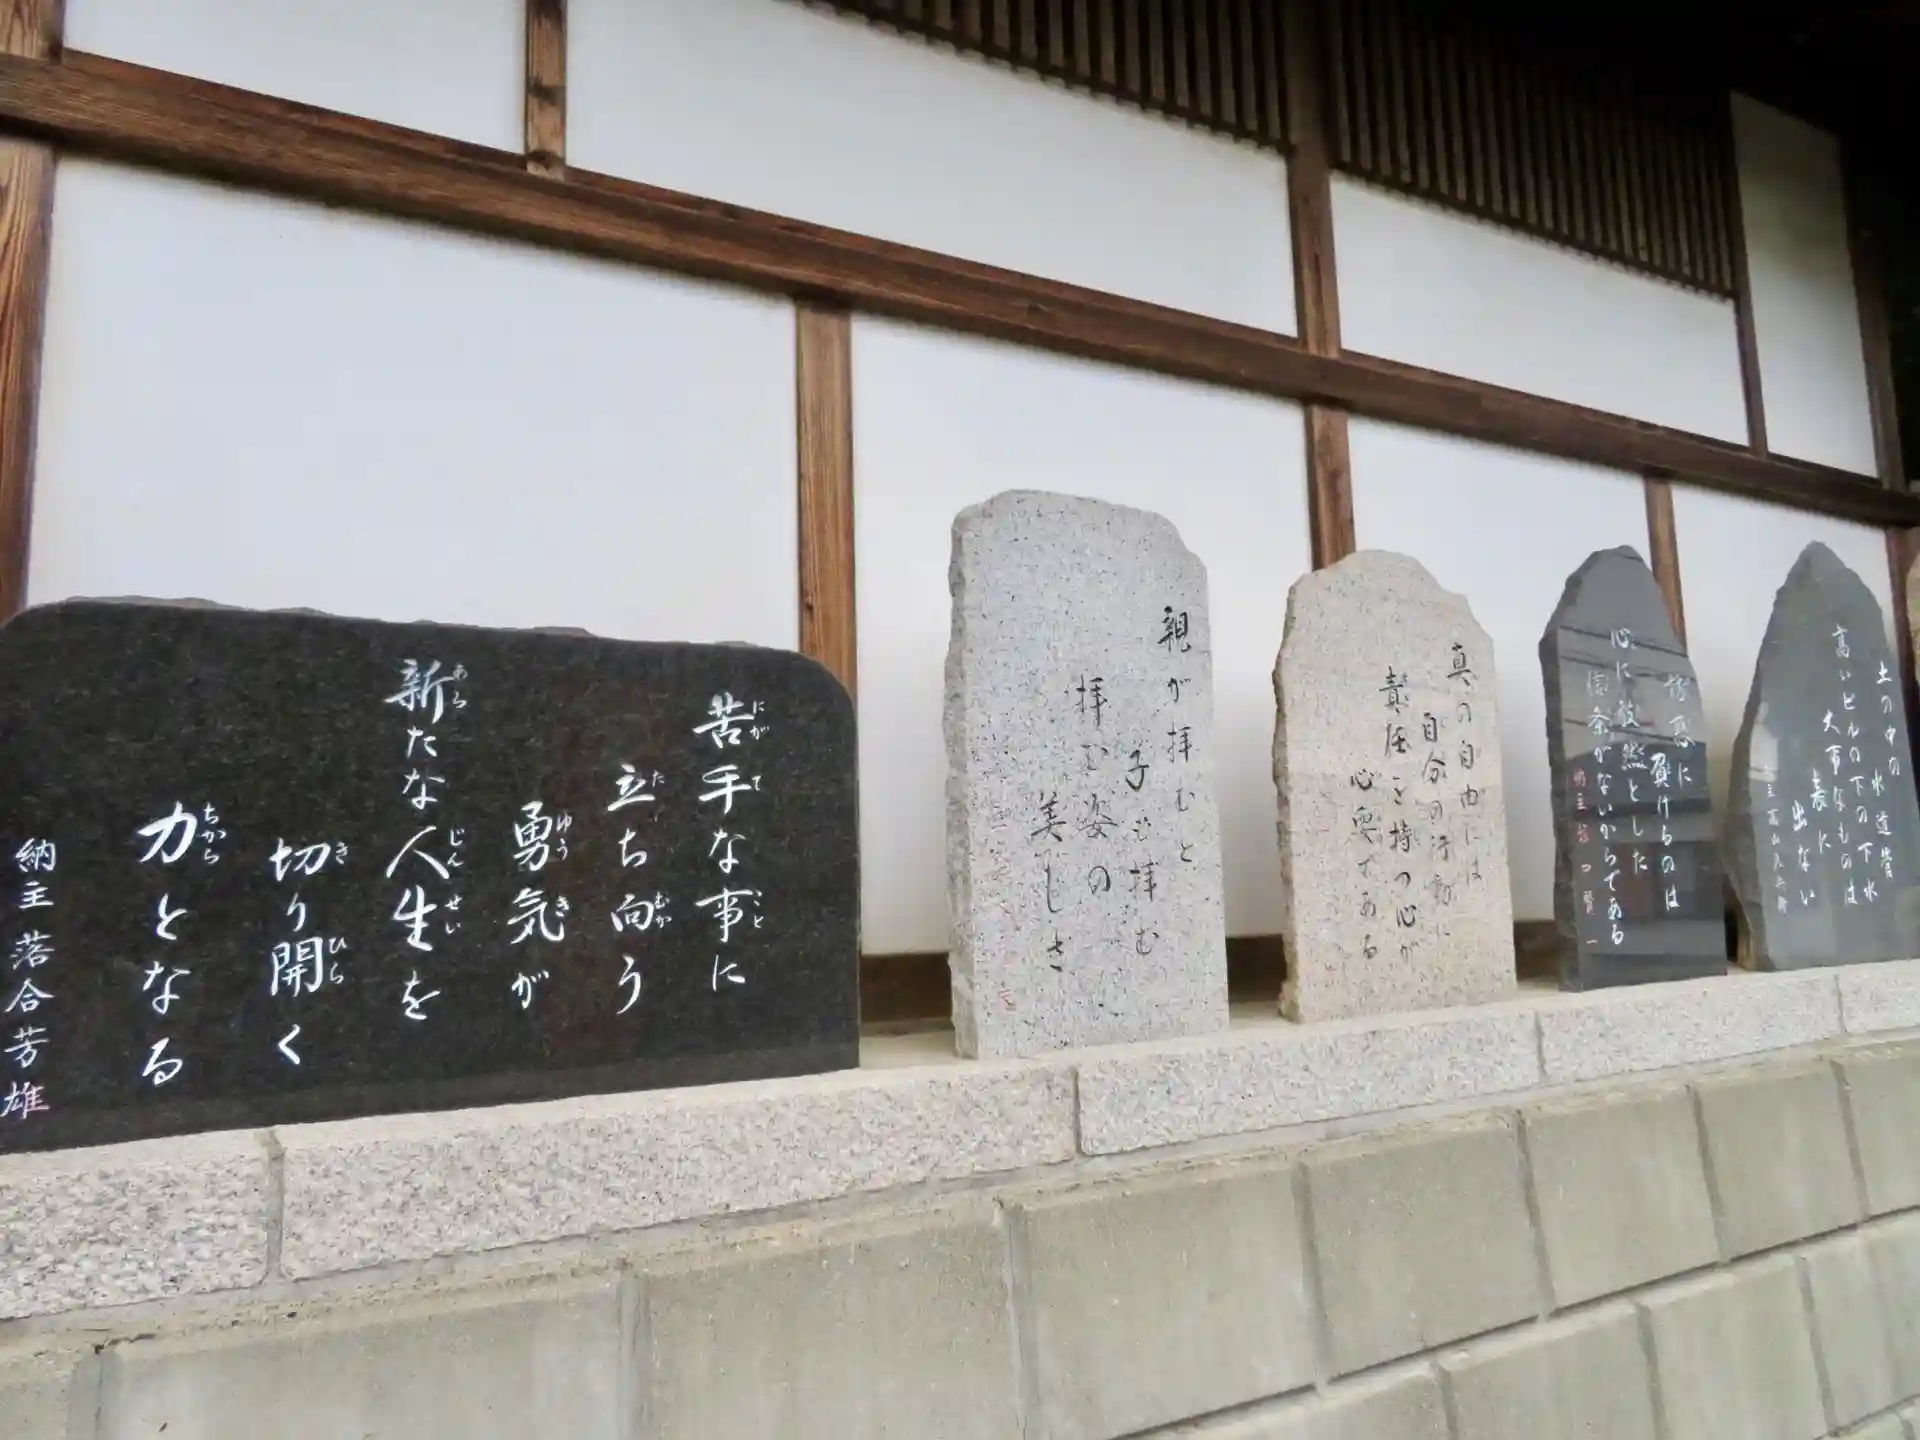 苦手な事に
にが て こと
立ち向う
た むか
勇気が
ゆう き
新たな人生を
あら じんせい
切り開く
き ひら
力となる
ちから
納主 落合芳雄
親が拝むと
子も拝む
拝む姿の
美しさ
真の自由には
自分の行動に
責任を持つ心が
必要である
負けるのは
心に毅然とした
信条がないからである
土の中の
水道管
高いビルの下の下水
大事なものは
表に
出ない